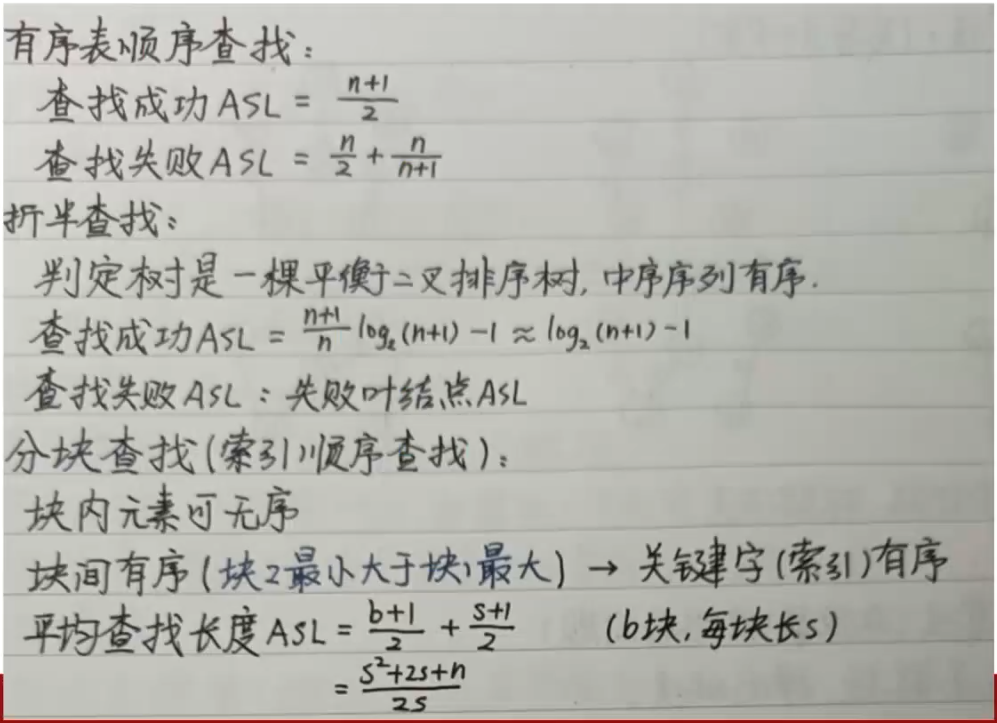 有序表顺序查找:
查找成功ASL = \frac{n+1}{2}
查找失败ASL = \frac{n}{2} + \frac{n}{n+1}
折半查找:
判定树是一棵平衡二叉排序树, 中序序列有序.
查找成功ASL = \frac{n+1}{n} log₂(n+1) -1 ≈ log₂(n+1) -1
查找失败ASL : 失败叶结点ASL
分块查找(索引顺序查找):
块内元素可无序
块间有序(块2最小大于块1最大) → 关键字(索引)有序
平均查找长度ASL = \frac{b+1}{2} + \frac{s+1}{2} (b块,每块长s)
= \frac{s²+2s+n}{2s}